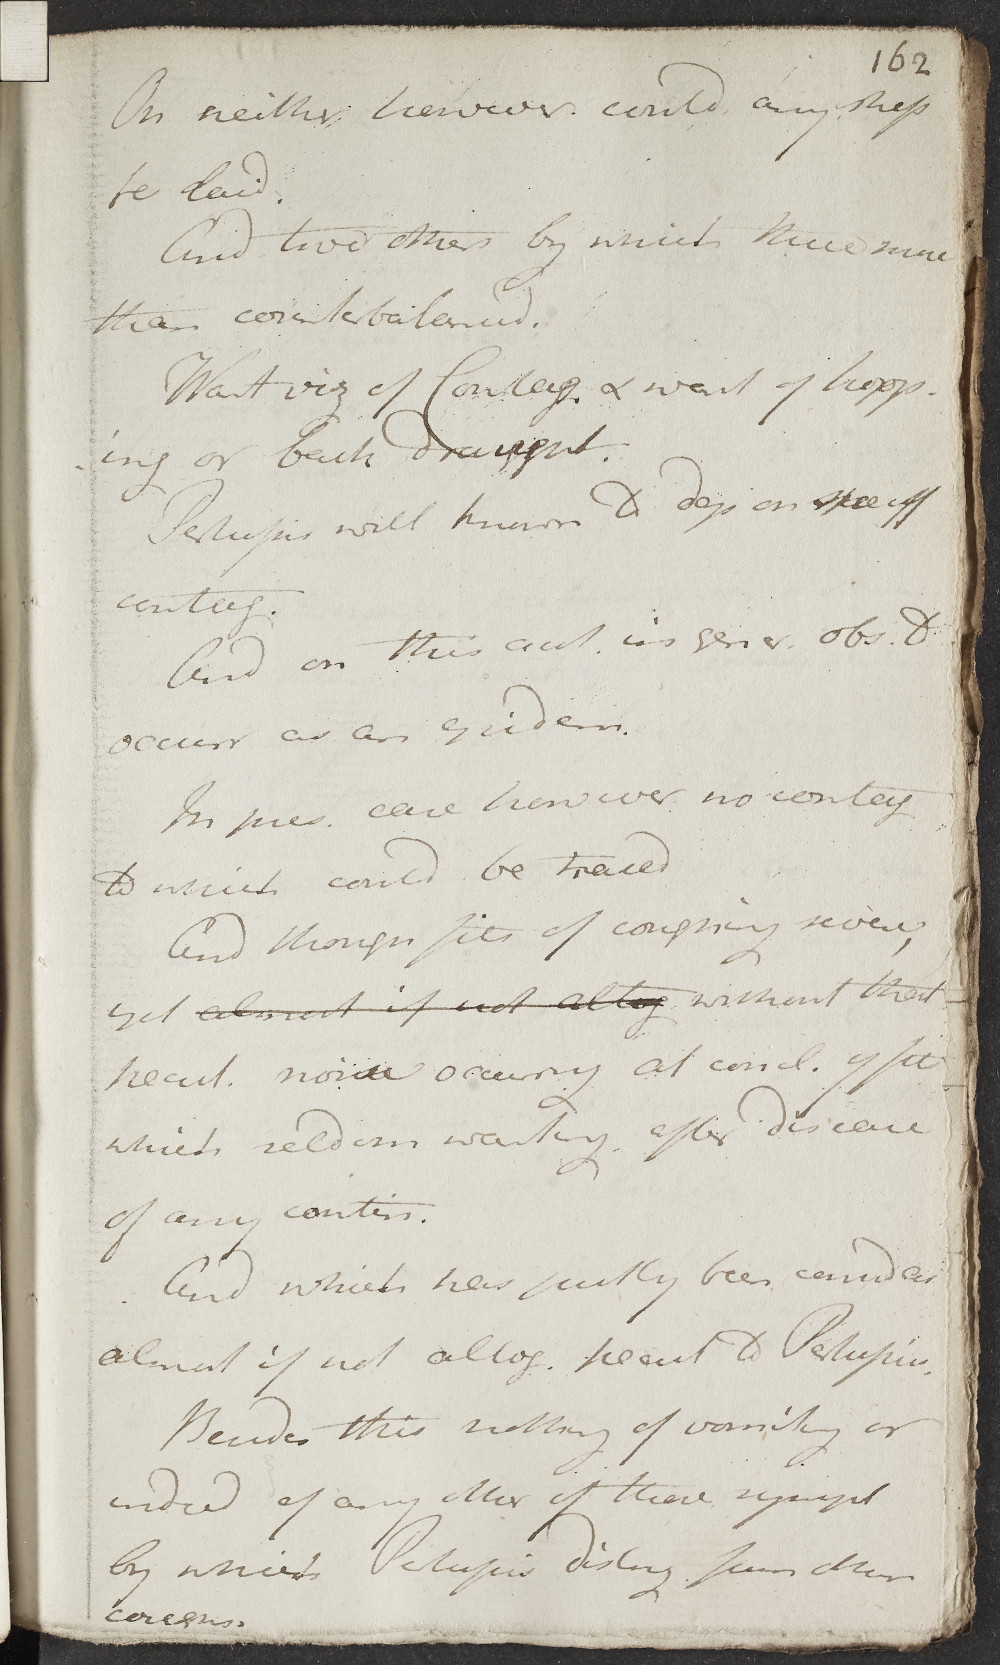 162
On neither however could any stress
be laid.
And two others by which these more
than counterbalanced.
Want viz of Contag. & want of hoop-
ing or back draught.
Pertussis well known to dep on specif
contag.
And on this acct. in gener. obs. to
occurr as an epidem.
In pres. case however no contag
to which could be traced
And though fits of coughing severe,
yet almost if not altog without that
pecul. noise occurrg at concl. of fit
which seldom wanting after disease
of any contin.
And which has justly been consider
almost if not altog. pecul to Pertussis.
Besides this nothing of vomiting or
indeed of any other of those sympt
by which Pertussis disting from other
coughs.